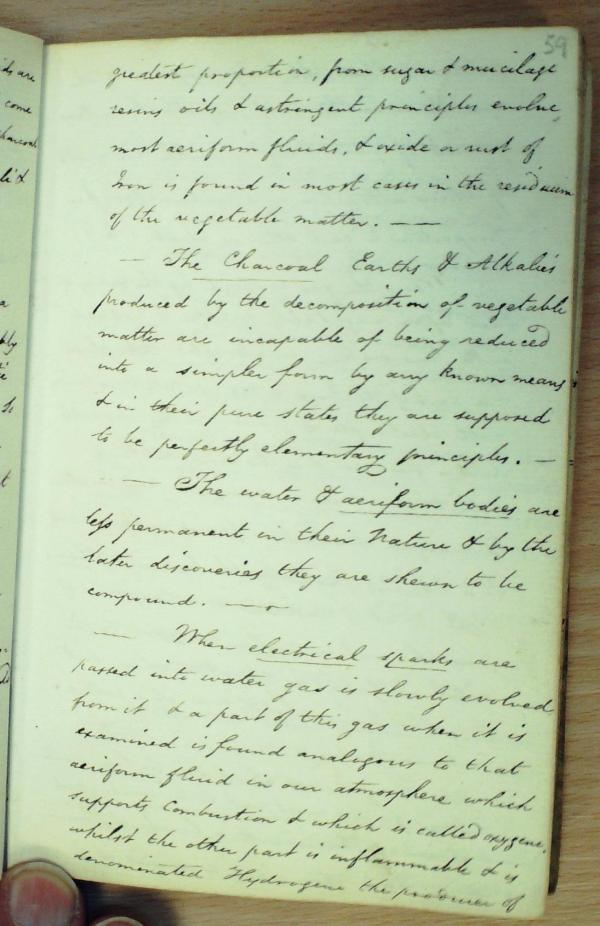 59
ds are
come
charcoal
greatest proportion, from sugar & mucilage
resins oils & astringent principles evolve
most aeriform fluids, & oxide or rust of
Iron is found in most cases in the residuum
of the vegetable matter. — —
— The Charcoal Earths & Alkalies
produced by the decomposition of vegetable
matter are incapable of being reduced
into a simpler form by any known means
& in their pure states they are supposed
to be perfectly elementary principles. —
— The water & aeriform bodies are
less permanent in their Nature & by the
later discoveries they are shewn to be
compound. —
— When electrical sparks are
passed into water gas is slowly evolved
from it & a part of this gas when it is
examined is found analogous to that
aeriform fluid in our atmosphere which
supports Combustion & which is called oxygene,
whilst the other part is inflammable & is
denominated Hydrogene the producer of